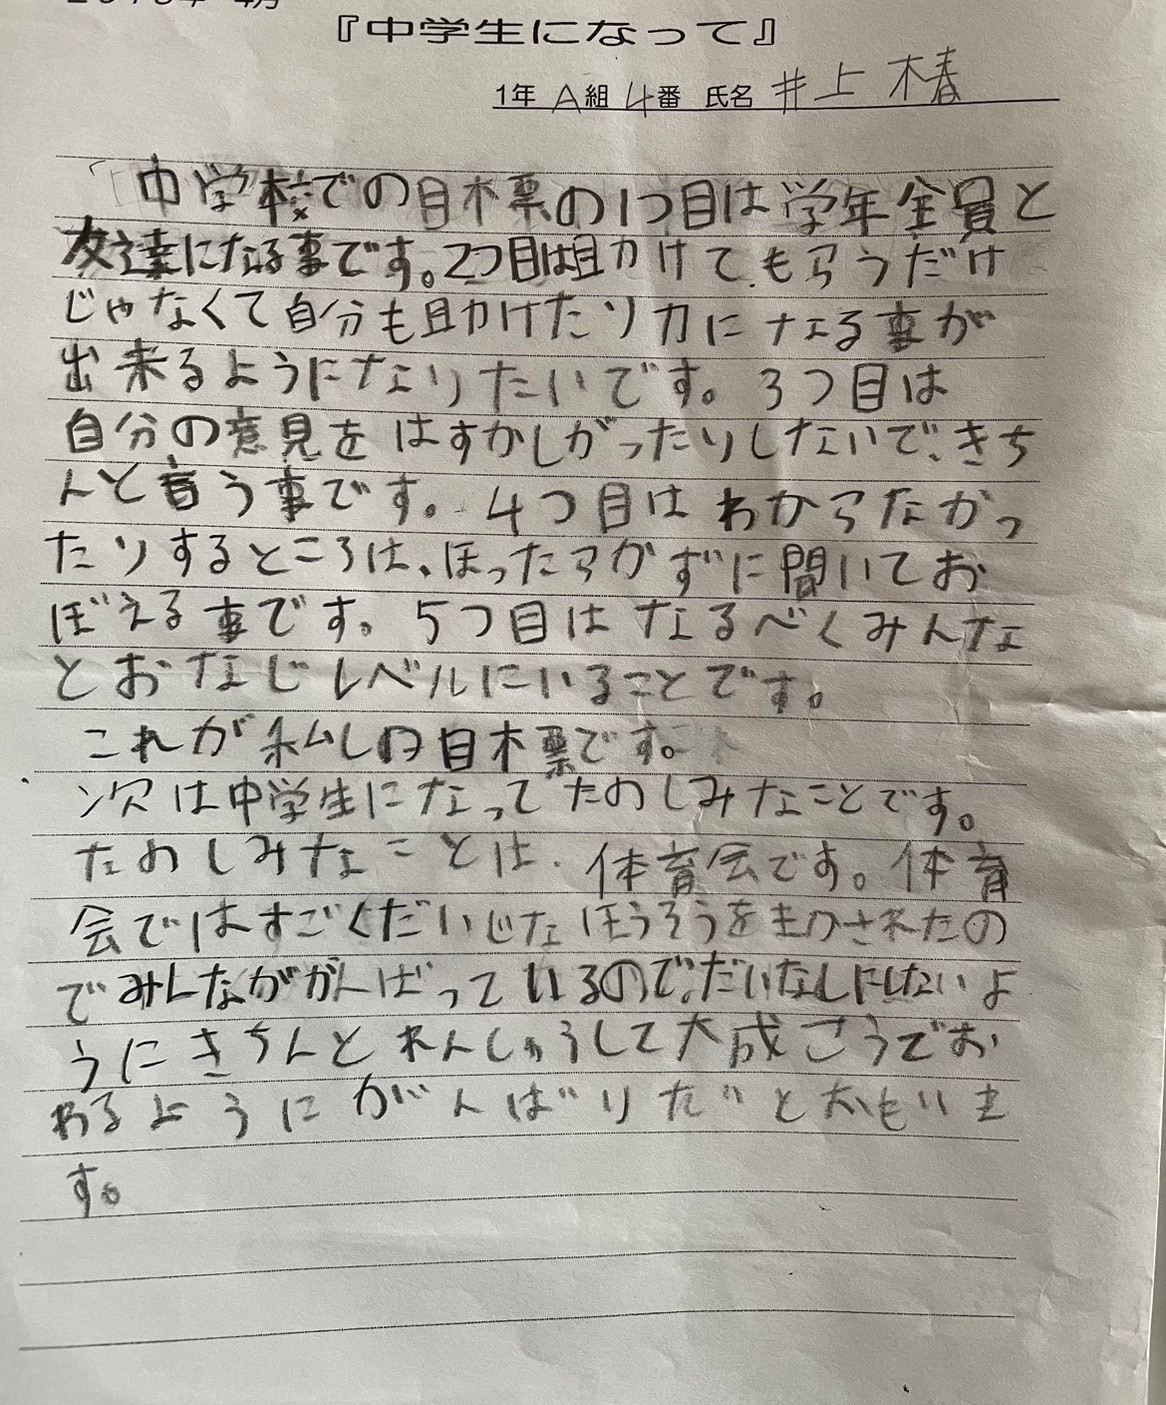 『中学生になって』
1年 A組 4番 氏名 井上 椿
中学校での目標の1つ目は学年全員と
友達になる事です。2つ目は助けてもらうだけ
じゃなくて自分も助けたり力になる事が
出来るようになりたいです。3つ目は
自分の意見をはすかしがったりしないで、きち
んと言う事です。4つ目はわからなかっ
たりするところは、ほったらかずに聞いてお
ぼえる事です。5つ目はなるべくみんな
とおなじレベルにいることです。
これが私しの目標です。
次は中学生になってたのしみなことです。
たのしみなことは、体育会です。体育
会ではすごくだいじなほうそうをまかされたの
でみんながががんばっているので、だいなしにしないよ
うにきちんとれんしゅうして大成こうでお
わるようにがんばりたいとおもいま
す。